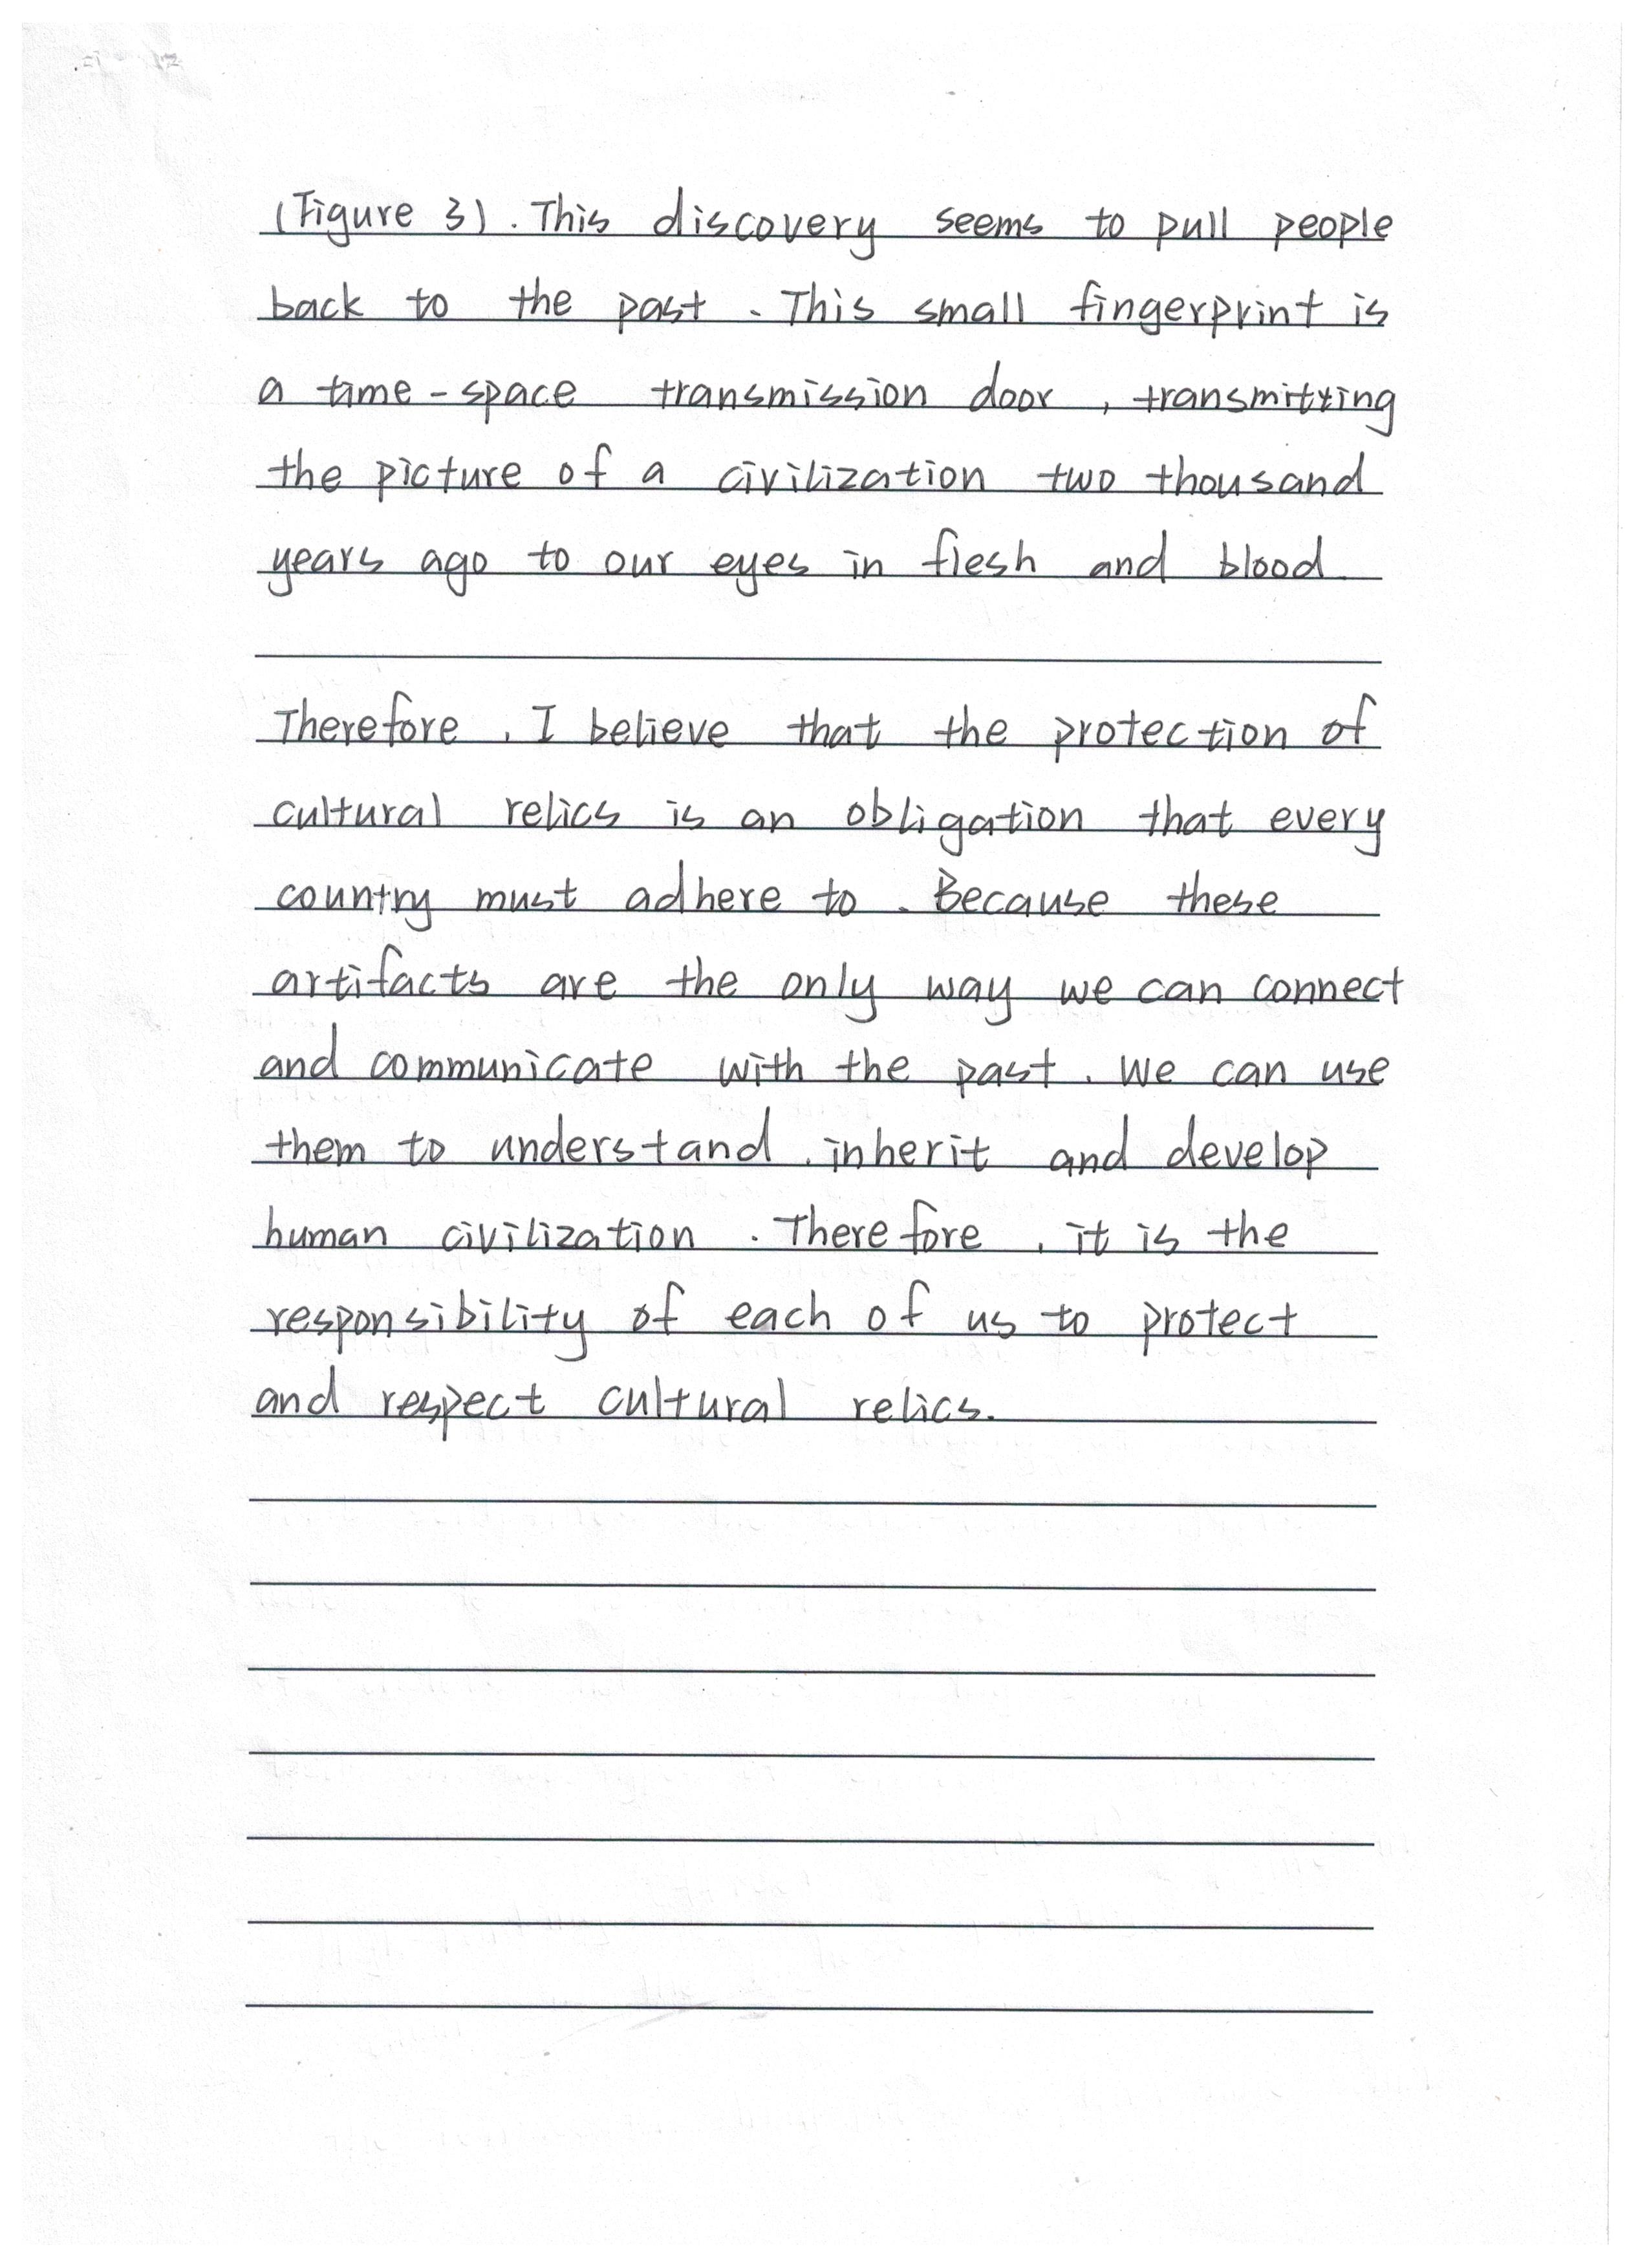 (Figure 3). This discovery seems to pull people
back to the past. This small fingerprint is
a time-space transmission door, transmitting
the picture of a civilization two thousand
years ago to our eyes in flesh and blood
Therefore, I believe that the protection of
cultural relics is an obligation that every
country must adhere to. Because these
artifacts are the only way we can connect
and communicate with the past. We can use
them to understand, inherit and develop
human civilization. Therefore, it is the
responsibility of each of us to protect
and respect cultural relics.